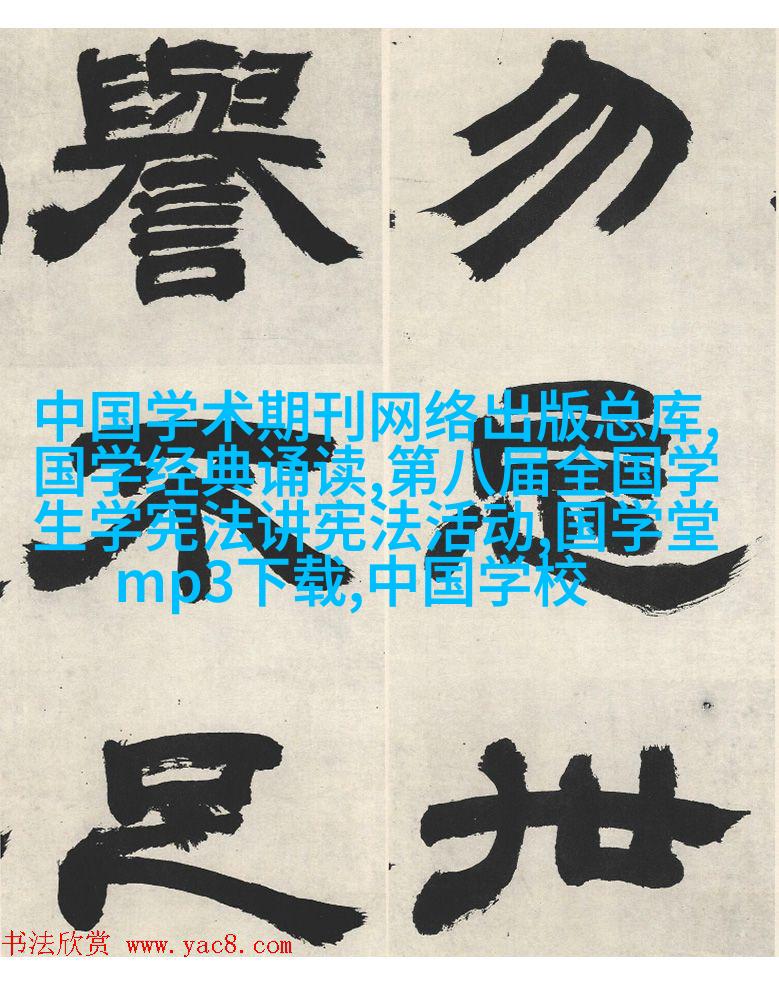 勿思世
譽不足
中国学术期刊网络出版总库,
国学经典诵读,第八届全国学
生学宪法讲宪法活动,国学堂
mp3下载,中国学校
书法欣赏 www.yac8.com